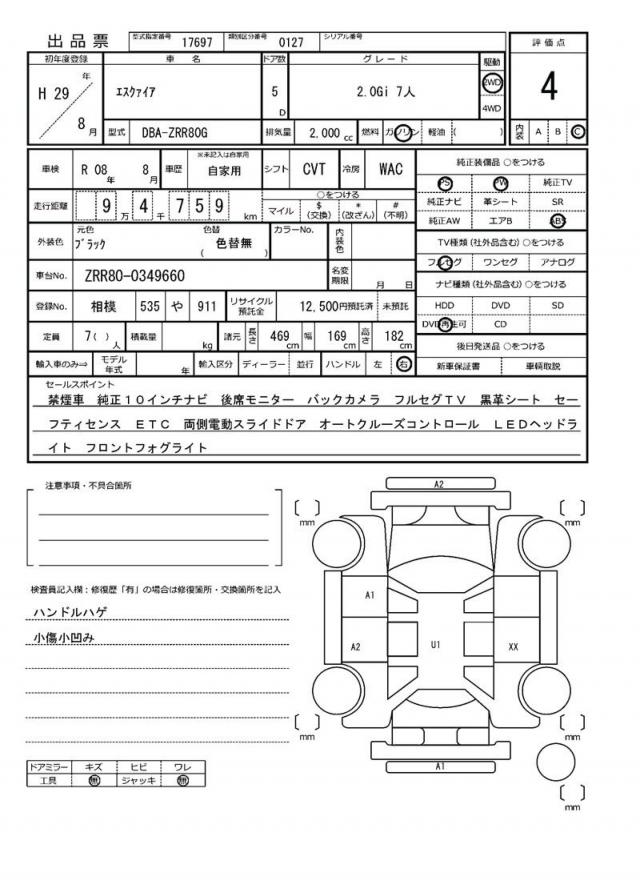 出品票 型式指定番号 17697 類別区分番号 0127 シリアル番号
評価点
4
内装 A B C
初年度登録 車名 ドア数 グレード 駆動
H 29 年 8 月
エスクァイア 5 D 2.0Gi 7人 2WD 4WD
型式 DBA-ZRR80G 排気量 2,000 cc 燃料 ガソリン 軽油 ( )
車検 R 08 年 8 月 車歴 ※未記入は自家用 自家用 シフト CVT 冷房 WAC
走行距離 9 万 4 千 7 5 9 km ○をつける マイル $ (交換) * (改ざん) # (不明)
外装色 元色 ブラック 色替 ( 色替無 ) カラーNo. 内装色
車台No. ZRR80-0349660 名変期限 月 日
登録No. 相模 535 や 911 リサイクル預託金 12,500円預託済 未預託
定員 7( ) 人 積載量 kg 諸元 長さ 469 cm 幅 169 cm 高さ 182 cm
輸入車のみ⇒ モデル年式 年 輸入区分 ディーラー 並行 ハンドル 左 右
純正装備品 ○をつける
PS PW 純正TV
純正ナビ 革シート SR
純正AW エアB ABS
TV種類(社外品含む) ○をつける
フルセグ ワンセグ アナログ
ナビ種類(社外品含む) ○をつける
HDD DVD SD
DVD再生可 CD
後日発送品 ○をつける
新車保証書 車輌取説
セールスポイント
禁煙車 純正１０インチナビ 後席モニター バックカメラ フルセグＴＶ 黒革シート セー
フティセンス ＥＴＣ 両側電動スライドドア オートクルーズコントロール ＬＥＤヘッドラ
イト フロントフォグライト
注意事項・不具合箇所
検査員記入欄：修復歴「有」の場合は修復箇所・交換箇所を記入
ハンドルハゲ
小傷小凹み
ドアミラー キズ ヒビ ワレ
工具 無 ジャッキ 無
A2
[ ] mm
[ ] mm
A1
A2 U1 XX
[ ] mm
[ ] mm
A1
[ ] mm